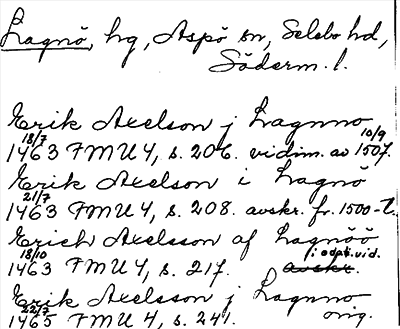 Lagnö, hg, Aspö sn, Selebo hd,
Söderm. l.
Erik Axelson j Lagnno
18/7 1463 FMU 4, s. 206. vidim. av 10/9 1507.
Erik Axelson i Lagnö
21/7 1463 FMU 4, s. 208. avskr. fr. 1500-t.
Erich Axelsson af Lagnöö
18/10 1463 FMU 4, s. 217. i odat. vid. avskr.
Erik Axelsson j Lagnno
22/7 1465 FMU 4, s. 241. orig.